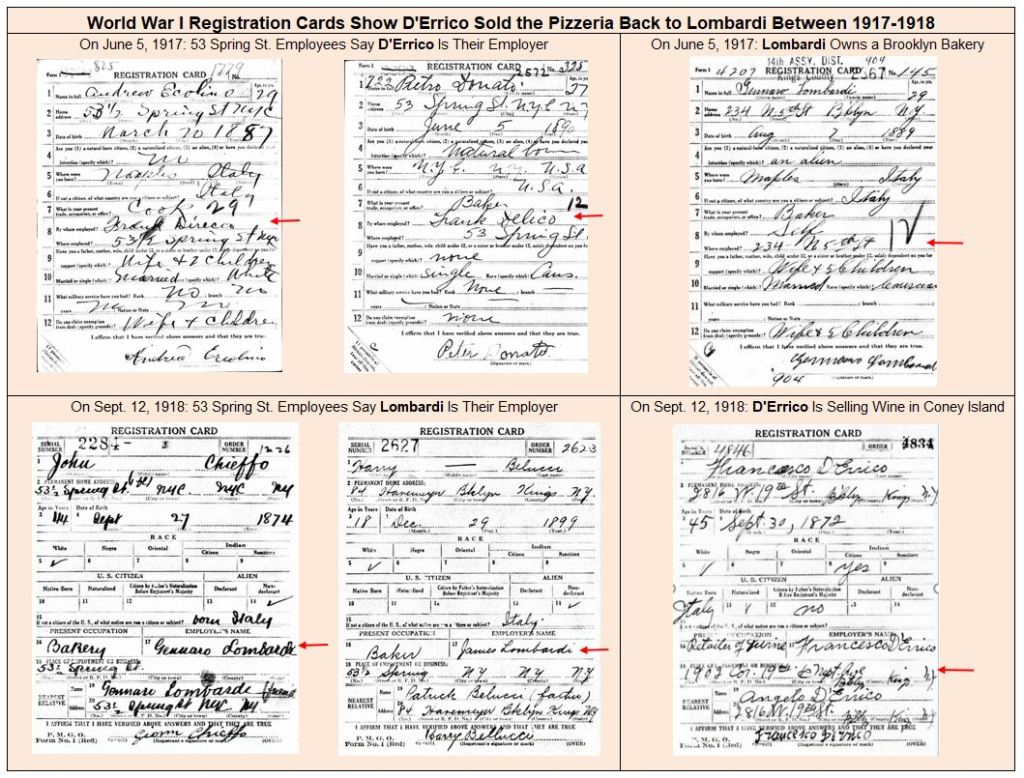 World War I Registration Cards Show D'Errico Sold the Pizzeria Back to Lombardi Between 1917-1918
On June 5, 1917: 53 Spring St. Employees Say D'Errico Is Their Employer
Form 1 825 1779 No.
REGISTRATION CARD
1 Name in full Andrew Ecolino
2 Home address 53½ Spring St NYC
3 Date of birth March 20 1887
4 Are you (1) a natural-born citizen, (2) a naturalized citizen, (3) an alien, (4) or have you declared your
intention (specify which)? no
5 Where were you born? Naples Italy
6 If not a citizen, of what country are you a citizen or subject? Italy
7 What is your present trade, occupation, or office? Cook 29
8 By whom employed? Frank Direcco
Where employed? 53½ Spring St NYC
9 Have you a father, mother, wife, child under 12, or a sister or brother under 12, solely dependent on you for
support (specify which)? Wife & 2 Children
10 Married or single (which)? Married Race White
11 What military service have you had? Rank no branch no
years no Nation or State no
12 Do you claim exemption from draft (specify grounds)? Wife & Children
I affirm that I have verified above answers and that they are true.
Andrea Ercolino
Form 1 2572 No. 325
REGISTRATION CARD
1 Name in full Pietro Donato 27
2 Home address 53 Spring St. N.Y.C. N.Y.
3 Date of birth June 5 1890
4 Natural born
5 Where were you born? N.Y.C. N.Y. U.S.A
6 If not a citizen, of what country are you a citizen or subject? U.S.A.
7 What is your present trade, occupation, or office? Baker 12
8 By whom employed? Frank Delico
Where employed? 53 Spring St.
9 support (specify which)? none
10 Married or single (which)? Single Race (specify which)? Caus.
11 What military service have you had? Rank None branch
years Nation or State
12 Do you claim exemption from draft (specify grounds)? none
I affirm that I have verified above answers and that they are true.
Peter Donato
(Signature or mark)
On June 5, 1917: Lombardi Owns a Brooklyn Bakery
14th ASSY. DIST. 904
Kings County
Form 1 4207 REGISTRATION CARD 2367 No. 145
1 Name in full Gennaro Lombardi 29
2 Home address 234 N 5th St Bklyn N.Y.
3 Date of birth Aug 2 1889
4 Are you (1) a natural-born citizen, (2) a naturalized citizen, (3) an alien, (4) or have you declared your
intention (specify which)? an alien
5 Where were you born? Naples Italy
6 If not a citizen, of what country are you a citizen or subject? Italy
7 What is your present trade, occupation, or office? Baker
8 By whom employed? Self
Where employed? 234 N 5th St
9 Have you a father, mother, wife, child under 12, or a sister or brother under 12, solely dependent on you for
support (specify which)? Wife & 5 Children
10 Married or single (which)? Married Race (specify which)? Caucasian
11 What military service have you had? Rank branch
years Nation or State
12 Do you claim exemption from draft (specify grounds)? Wife & 5 Children
I affirm that I have verified above answers and that they are true.
Gennaro Lombardi
904 (Signature or mark)
On Sept. 12, 1918: 53 Spring St. Employees Say Lombardi Is Their Employer
REGISTRATION CARD
SERIAL NUMBER 2284 ORDER NUMBER 1226
1 John Chieffo
2 PERMANENT HOME ADDRESS:
53½ Spring St. NYC NYC NY
Age in Years Date of Birth
44 Sept 27 1874
RACE
White Negro Oriental Indian
Citizen Noncitizen
5 6 7 8 9
U. S. CITIZEN ALIEN
Native Born Naturalized Citizen by Father's Naturalization Before Registrant's Majority Declarant Non-declarant
10 11 12 13 14
15 If not a citizen of the U. S., of what nation are you a citizen or subject? born Italy
PRESENT OCCUPATION EMPLOYER'S NAME
16 Bakery 17 Gennaro Lombarde
18 PLACE OF EMPLOYMENT OR BUSINESS:
53½ Spring St.
NEAREST RELATIVE Name 19 Gennaro Lombarde (friend)
Address 20 53½ Spring St NYC NY
I AFFIRM THAT I HAVE VERIFIED ABOVE ANSWERS AND THAT THEY ARE TRUE
P. M. G. O.
Form No. 1 (Red) Chieffo (OVER)
REGISTRATION CARD
SERIAL NUMBER 2627 ORDER NUMBER 2623
1 Harry — Belucci
2 PERMANENT HOME ADDRESS:
84 Havemeyer Bklyn Kings N.Y.
Age in Years Date of Birth
18 Dec. 29 1899
RACE
White Negro Oriental Indian
Citizen Noncitizen
5 6 7 8 9
U. S. CITIZEN ALIEN
Native Born Naturalized Citizen by Father's Naturalization Before Registrant's Majority Declarant Non-declarant
10 11 12 13 14
15 If not a citizen of the U. S., of what nation are you a citizen or subject? Italy.
PRESENT OCCUPATION EMPLOYER'S NAME
16 Baker 17 James Lombardi
18 PLACE OF EMPLOYMENT OR BUSINESS:
53½ Spring N.Y. N.Y. N.Y.
NEAREST RELATIVE Name 19 Patrick Belucci (father)
Address 20 84 Havemeyer Bklyn Kings NY
I AFFIRM THAT I HAVE VERIFIED ABOVE ANSWERS AND THAT THEY ARE TRUE
P. M. G. O. Harry Bellucci
Form No. 1 (Red) (Registrant's signature or mark) (OVER)
On Sept. 12, 1918: D'Errico Is Selling Wine in Coney Island
REGISTRATION CARD
SERIAL NUMBER 4846 ORDER 4834
Francesco D'Errico
2 PERMANENT HOME ADDRESS:
2816 W. 19th St. Bklyn Kings N.Y
Age in Years Date of Birth
45 Sept. 30, 1872
RACE
White Negro Oriental Indian
Citizen Noncitizen
5 6 7 8 yes 9
U. S. CITIZEN ALIEN
Native Born Naturalized Citizen by Father's Naturalization Before Registrant's Majority Declarant Non-declarant
Italy 11 12 no 13 14
PRESENT OCCUPATION EMPLOYER'S NAME
16 Retailer of Wine 17 Francesco D'Errico
1902 Cor. 19th St Bklyn Kings N.Y
NEAREST RELATIVE Name 19 Angelo D'Errico
Address 2816 W. 19th St. Bklyn Kings N.Y
I AFFIRM THAT I HAVE VERIFIED ABOVE ANSWERS AND THAT THEY ARE TRUE
P. M. G. O. Francesco D'Errico
Form No. 1 (Red) (Registrant's signature or mark) (OVER)